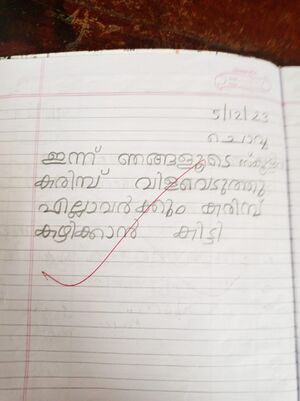 5/12/23
ചൊവ്വ
ഇന്ന് ഞങ്ങളുടെ സ്കൂളിൽ
കരിമ്പ് വിളവെടുത്തു
എല്ലാവർക്കും കരിമ്പ്
കഴിക്കാൻ കിട്ടി